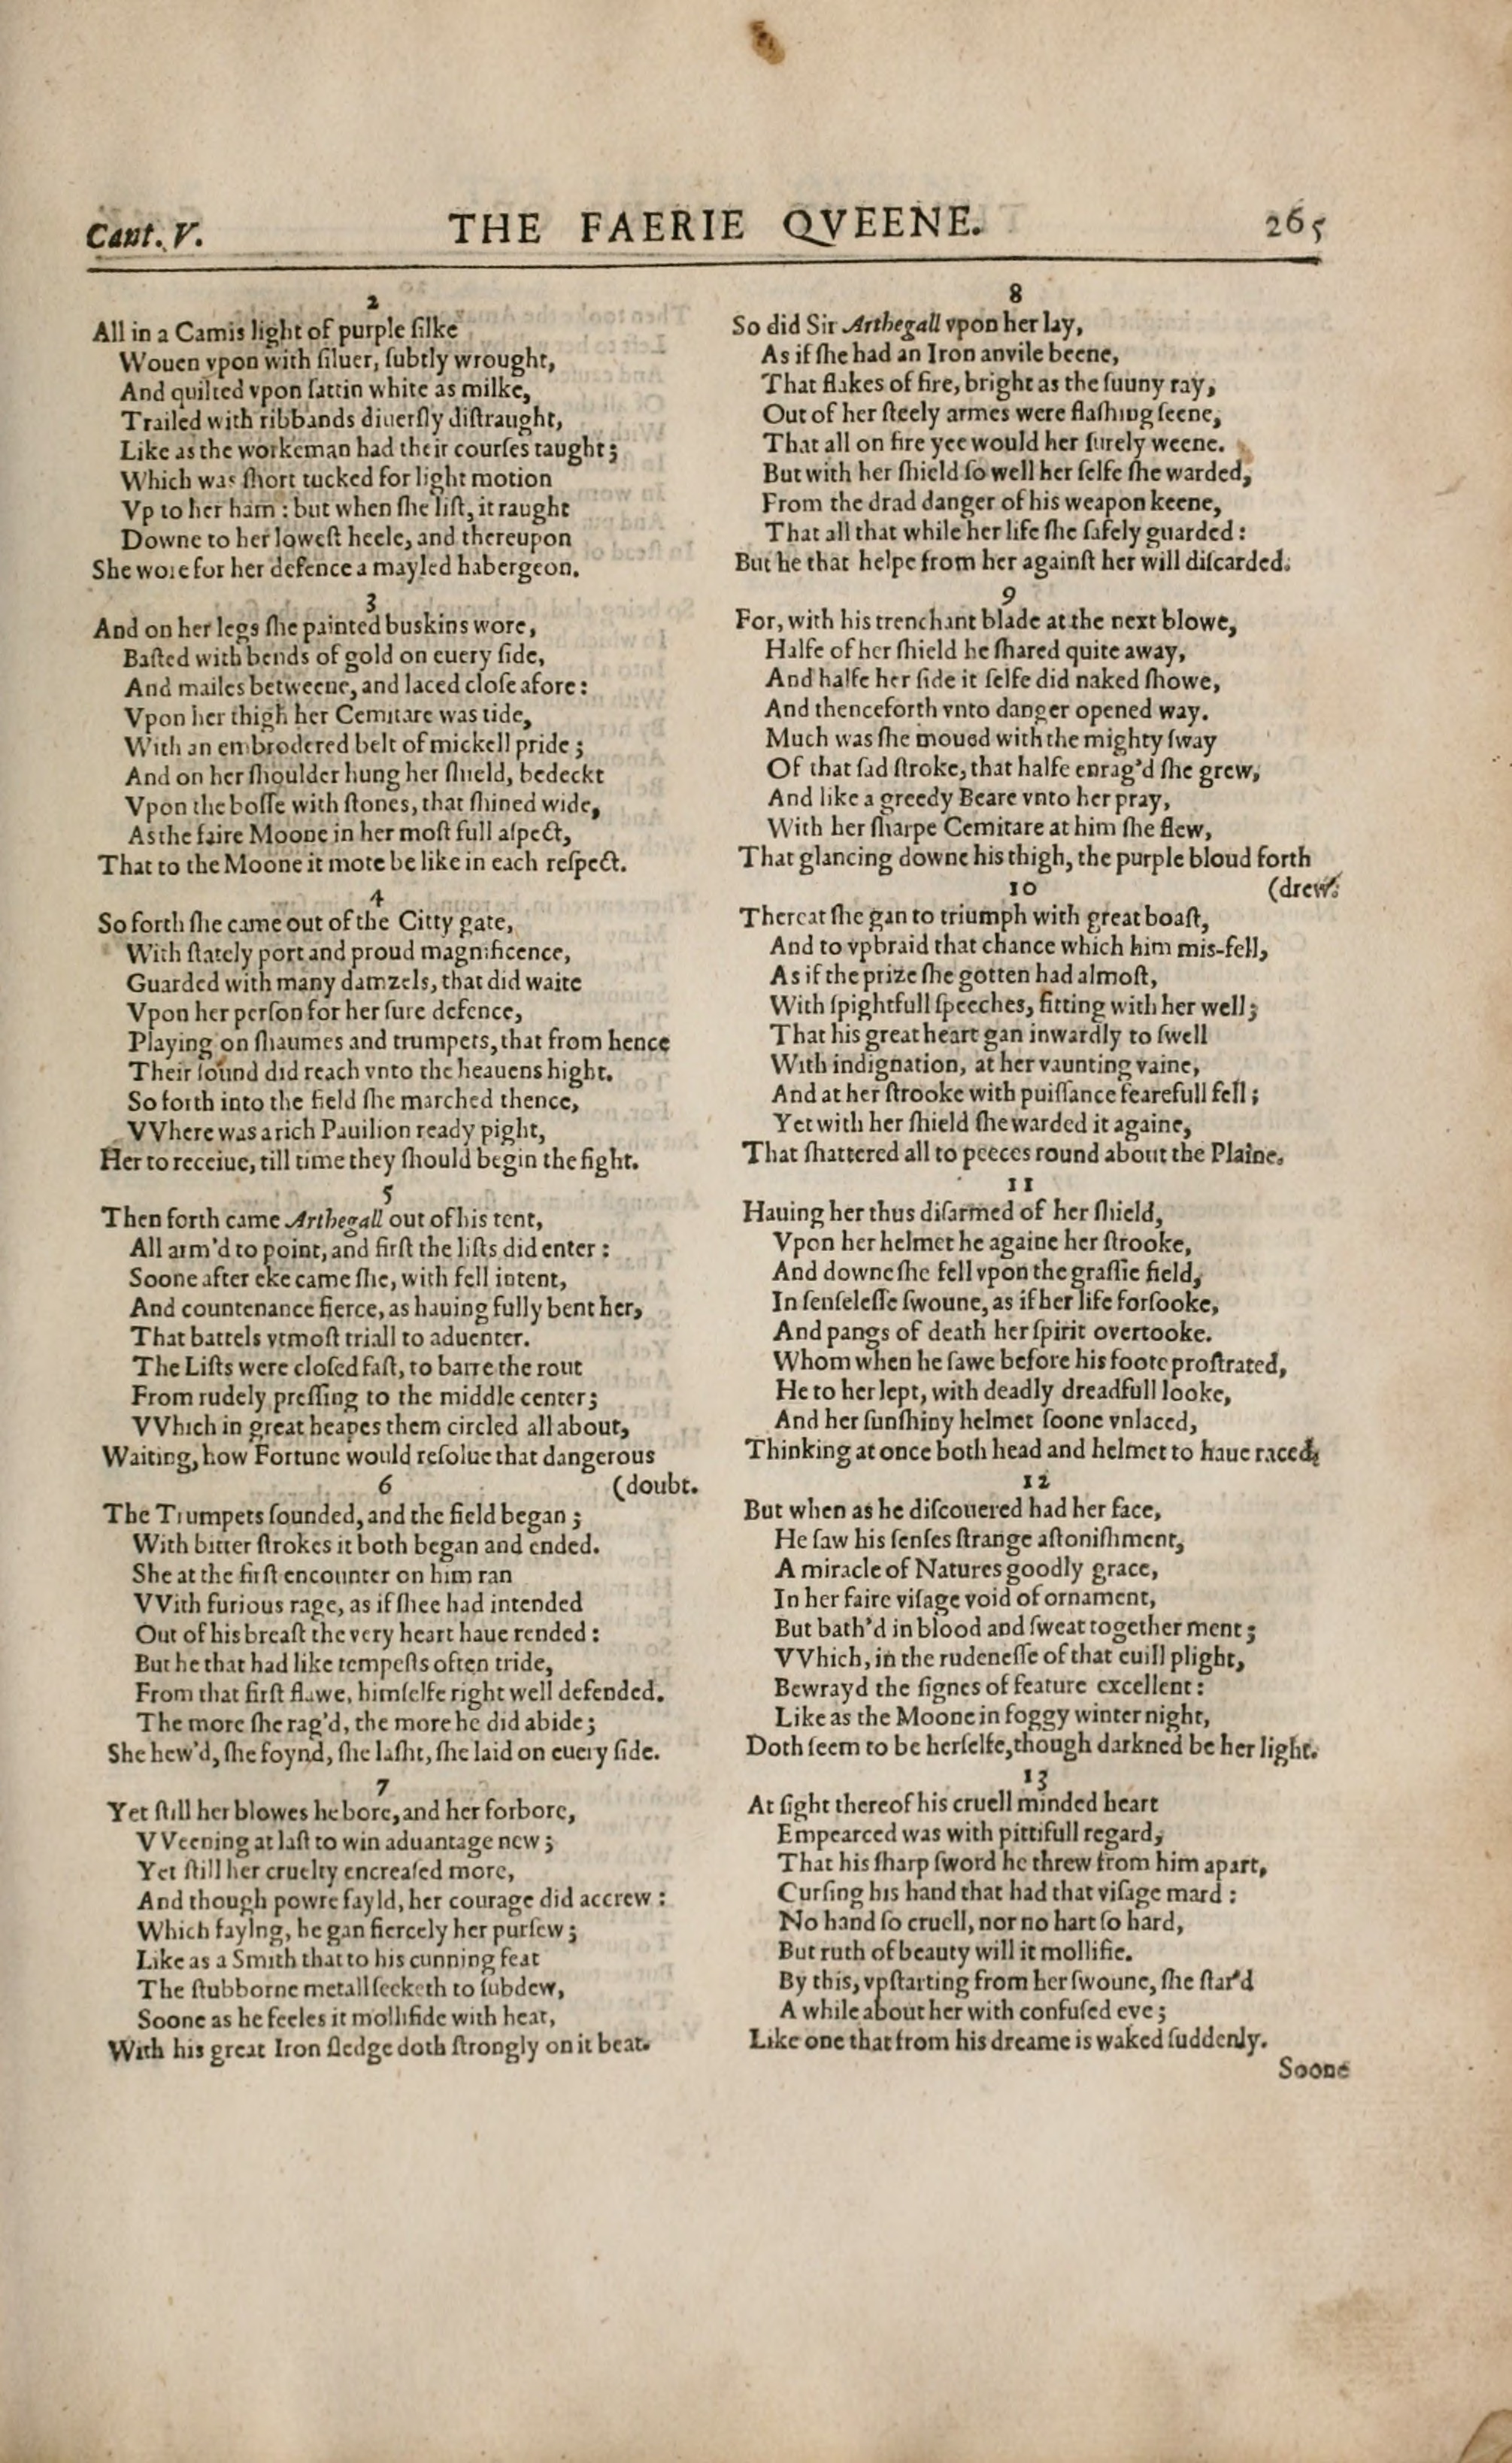 Cant. V.
THE FAERIE QVEENE.
265
2
All in a Camis light of purple ſilke
Wouen vpon with ſiluer, ſubtly wrought,
And quilted vpon ſattin white as milke,
Trailed with ribbands diuerſly diſtraught,
Like as the workeman had their courſes taught;
Which was ſhort tucked for light motion
Vp to her ham: but when ſhe liſt, it raught
Downe to her loweſt heele, and thereupon
She wore for her defence a mayled habergeon.
3
And on her legs ſhe painted buskins wore,
Baſted with bends of gold on euery ſide,
And mailes betweene, and laced cloſe afore:
Vpon her thigh her Cemitare was tide,
With an embrodered belt of mickell pride;
And on her ſhoulder hung her ſhield, bedeckt
Vpon the boſſe with ſtones, that ſhined wide,
As the faire Moone in her moſt full aſpect,
That to the Moone it mote be like in each reſpect.
4
So forth ſhe came out of the Citty gate,
With ſtately port and proud magnificence,
Guarded with many damzels, that did waite
Vpon her perſon for her ſure defence,
Playing on ſhaumes and trumpets, that from hence
Their ſound did reach vnto the heauens hight.
So forth into the field ſhe marched thence,
VVhere was a rich Pauilion ready pight,
Her to receiue, till time they ſhould begin the fight.
5
Then forth came Arthegall out of his tent,
All arm'd to point, and firſt the liſts did enter:
Soone after eke came ſhe, with fell intent,
And countenance fierce, as hauing fully bent her,
That battels vtmoſt triall to aduenter.
The Liſts were cloſed faſt, to barre the rout
From rudely preſſing to the middle center;
VVhich in great heapes them circled all about,
Waiting, how Fortune would reſolue that dangerous
(doubt.
6
The Trumpets ſounded, and the field began;
With bitter ſtrokes it both began and ended.
She at the firſt encounter on him ran
VVith furious rage, as if ſhee had intended
Out of his breaſt the very heart haue rended:
But he that had like tempeſts often tride,
From that firſt flawe, himſelfe right well defended.
The more ſhe rag'd, the more he did abide;
She hew'd, ſhe foynd, ſhe laſht, ſhe laid on euery ſide.
7
Yet ſtill her blowes he bore, and her forbore,
VVeening at laſt to win aduantage new;
Yet ſtill her cruelty encreaſed more,
And though powre fayld, her courage did accrew:
Which faylng, he gan fiercely her purſew;
Like as a Smith that to his cunning feat
The ſtubborne metall ſeeketh to ſubdew,
Soone as he feeles it mollifide with heat,
With his great Iron ſledge doth ſtrongly on it beat.
8
So did Sir Arthegall vpon her lay,
As if ſhe had an Iron anvile beene,
That flakes of fire, bright as the ſuuny ray,
Out of her ſteely armes were flaſhing ſeene,
That all on fire yee would her ſurely weene.
But with her ſhield ſo well her ſelfe ſhe warded,
From the drad danger of his weapon keene,
That all that while her life ſhe ſafely guarded:
But he that helpe from her againſt her will diſcarded.
9
For, with his trenchant blade at the next blowe,
Halfe of her ſhield he ſhared quite away,
And halfe her ſide it ſelfe did naked ſhowe,
And thenceforth vnto danger opened way.
Much was ſhe moued with the mighty ſway
Of that ſad ſtroke, that halfe enrag'd ſhe grew,
And like a greedy Beare vnto her pray,
With her ſharpe Cemitare at him ſhe flew,
That glancing downe his thigh, the purple bloud forth
(drew.
10
Thereat ſhe gan to triumph with great boaſt,
And to vpbraid that chance which him mis-fell,
As if the prize ſhe gotten had almoſt,
With ſpightfull ſpeeches, fitting with her well;
That his great heart gan inwardly to ſwell
With indignation, at her vaunting vaine,
And at her ſtrooke with puiſſance fearefull fell;
Yet with her ſhield ſhe warded it againe,
That ſhattered all to peeces round about the Plaine.
11
Hauing her thus diſarmed of her ſhield,
Vpon her helmet he againe her ſtrooke,
And downe ſhe fell vpon the graſſie field,
In ſenſeleſſe ſwoune, as if her life forſooke,
And pangs of death her ſpirit overtooke.
Whom when he ſawe before his foote proſtrated,
He to her lept, with deadly dreadfull looke,
And her ſunſhiny helmet ſoone vnlaced,
Thinking at once both head and helmet to haue raced.
12
But when as he diſcouered had her face,
He ſaw his ſenſes ſtrange aſtoniſhment,
A miracle of Natures goodly grace,
In her faire viſage void of ornament,
But bath'd in blood and ſweat together ment;
VVhich, in the rudeneſſe of that euill plight,
Bewrayd the ſignes of feature excellent:
Like as the Moone in foggy winter night,
Doth ſeem to be herſelfe, though darkned be her light.
13
At ſight thereof his cruell minded heart
Empearced was with pittifull regard,
That his ſharp ſword he threw from him apart,
Curſing his hand that had that viſage mard:
No hand ſo cruell, nor no hart ſo hard,
But ruth of beauty will it mollifie.
By this, vpſtarting from her ſwoune, ſhe ſtar'd
A while about her with confuſed eye;
Like one that from his dreame is waked ſuddenly.
Soone